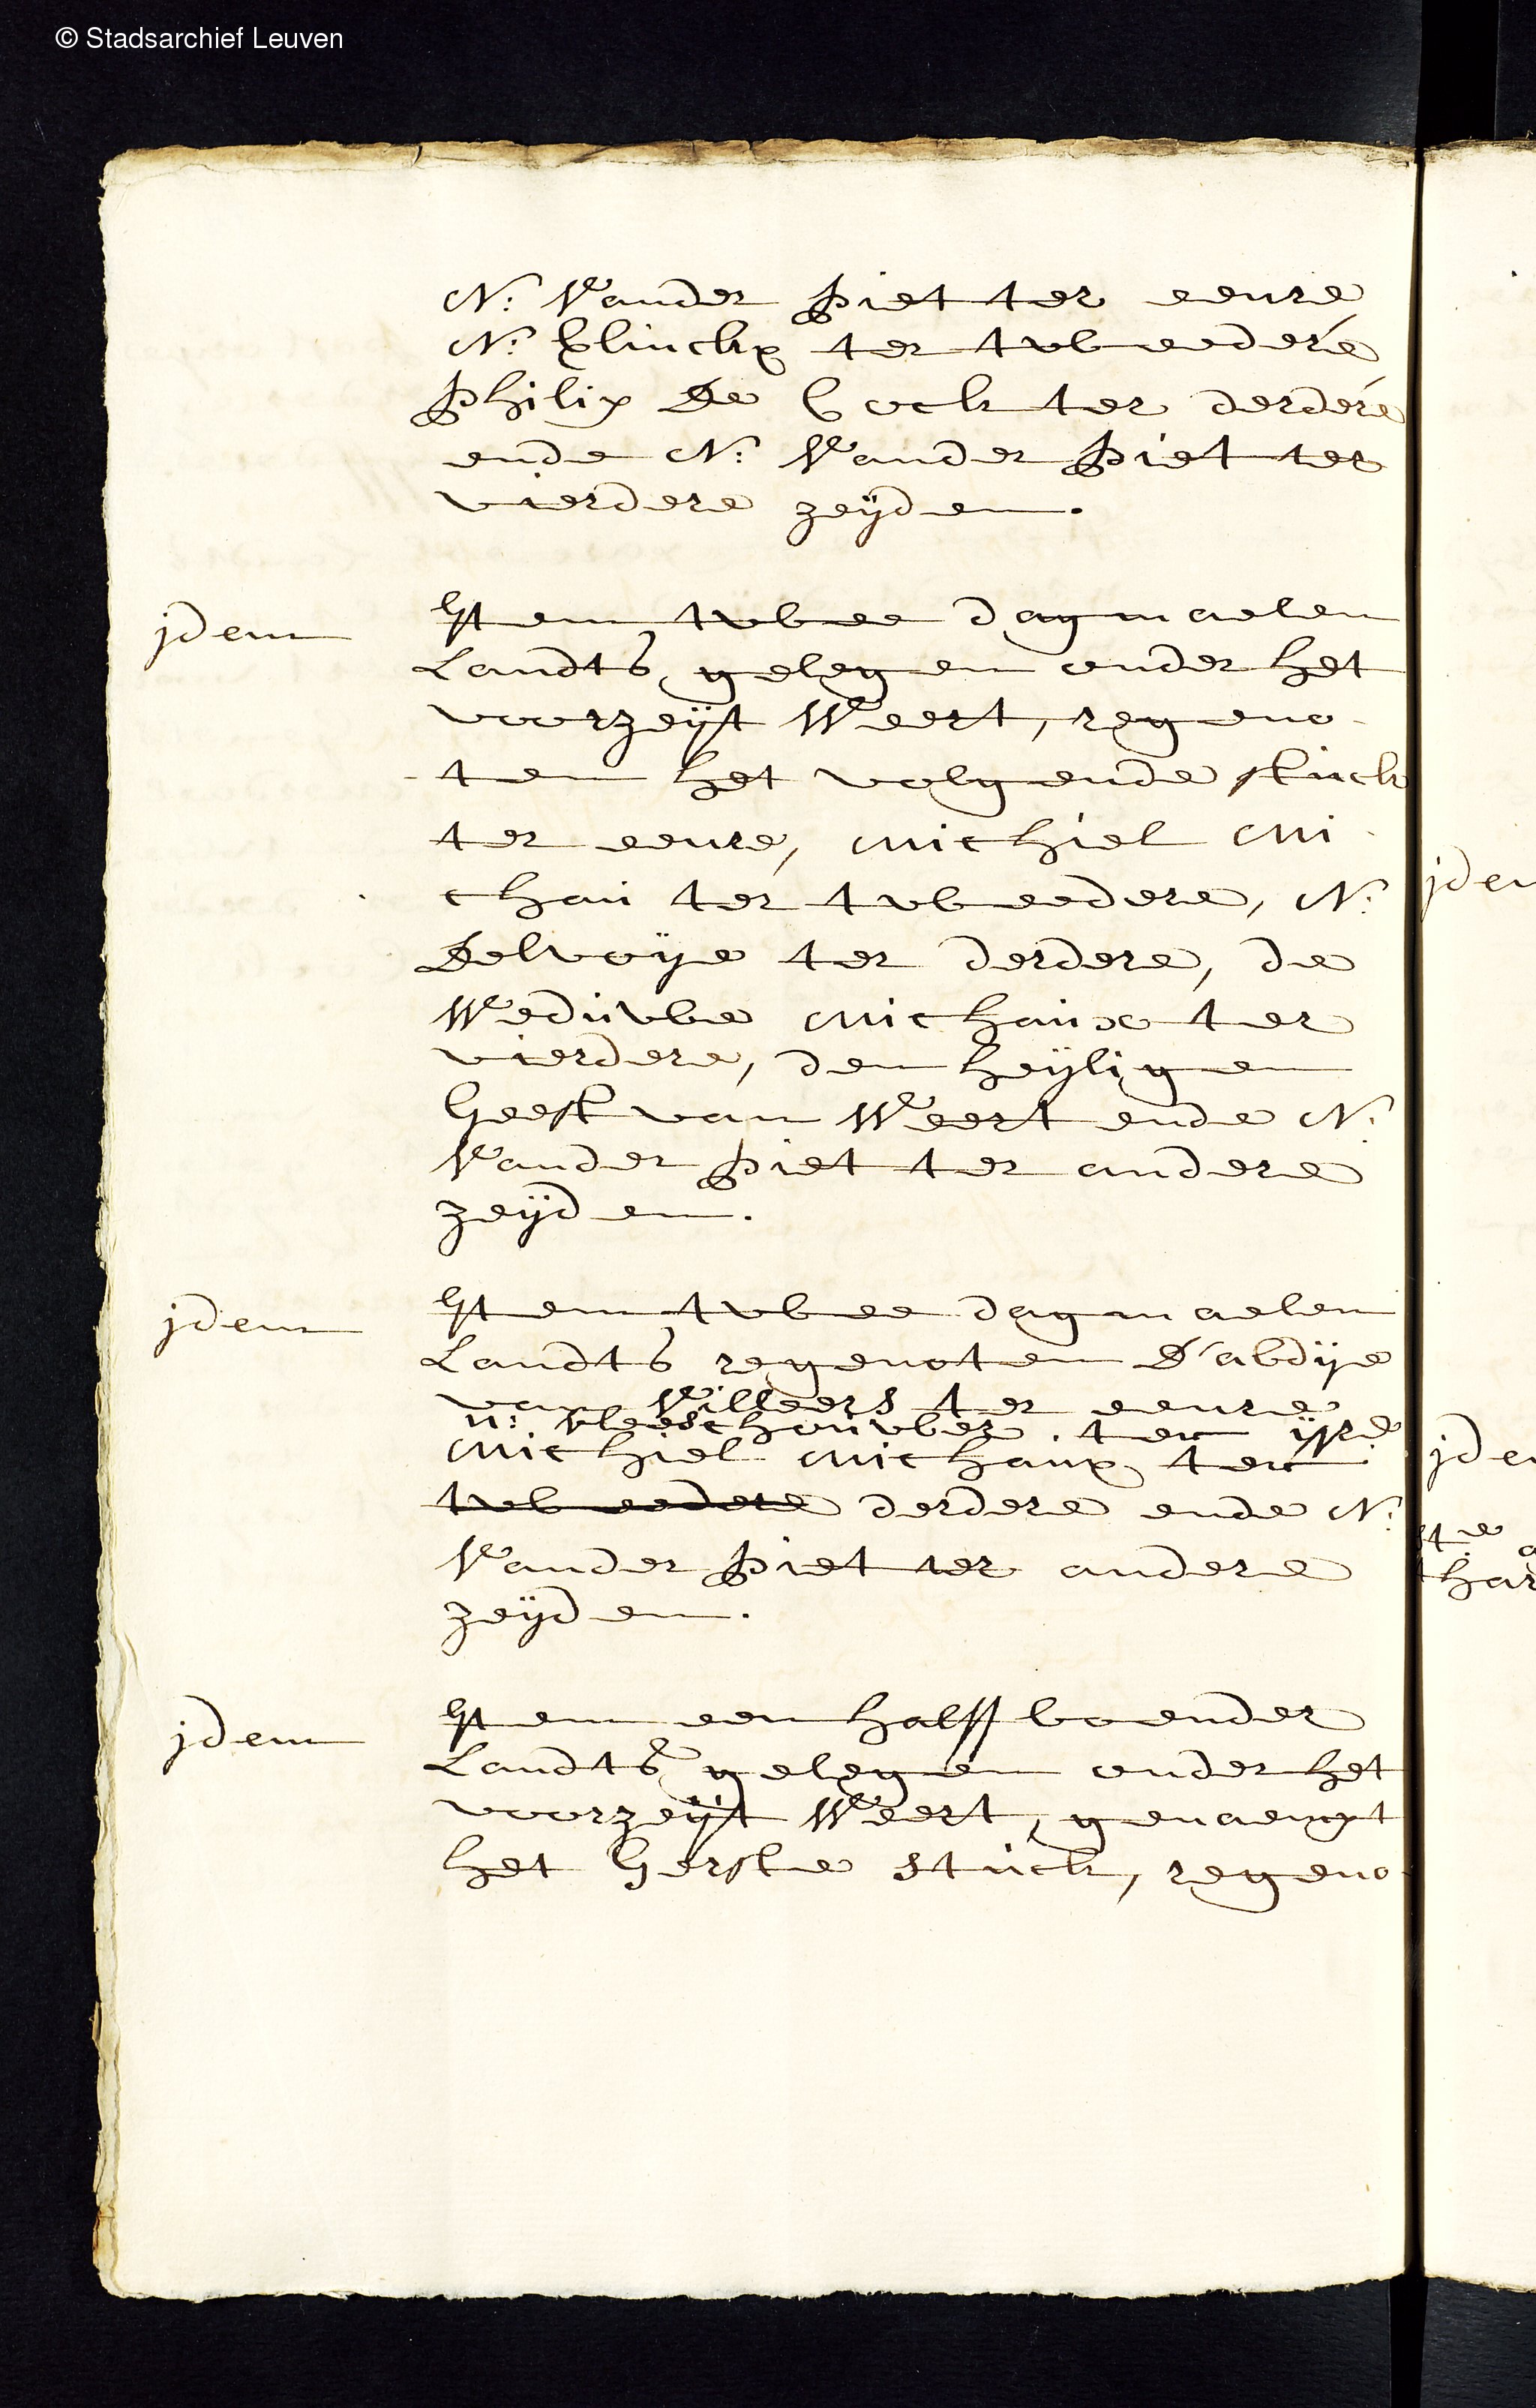 © Stadsarchief Leuven
N: Vander Piet ter eenre
N: Clinckx ter tweedere
Philix De Cock ter derdere
ende N: Vander Piet ter
vierdere zeÿden.
jdem
Item twee dagmaelen
Landts gelegen onder het
voorzeÿt Weert, regeno
ten het volgende stuck
ter eenre, Michiel Mi
chau ter tweedere, N:
Delvoÿe ter derdere, de
Weduwe Michaux ter
vierdere, den heÿligen
Geest van Weert ende N:
Vander Piet ter andere
zeÿden.
jdem
Item twee dagmaelen
Landts regenoten D'abdÿe
van Villeers ter eenre
n: vleeschouwer ter ij.re
Michiel Michaux ter
tweedere derdere ende N:
Vander Piet ter andere
zeÿden.
jdem
Item een halff boender
Landts gelegen onder het
voorzeÿt Weert, genaempt
het Gerste stuck, regeno